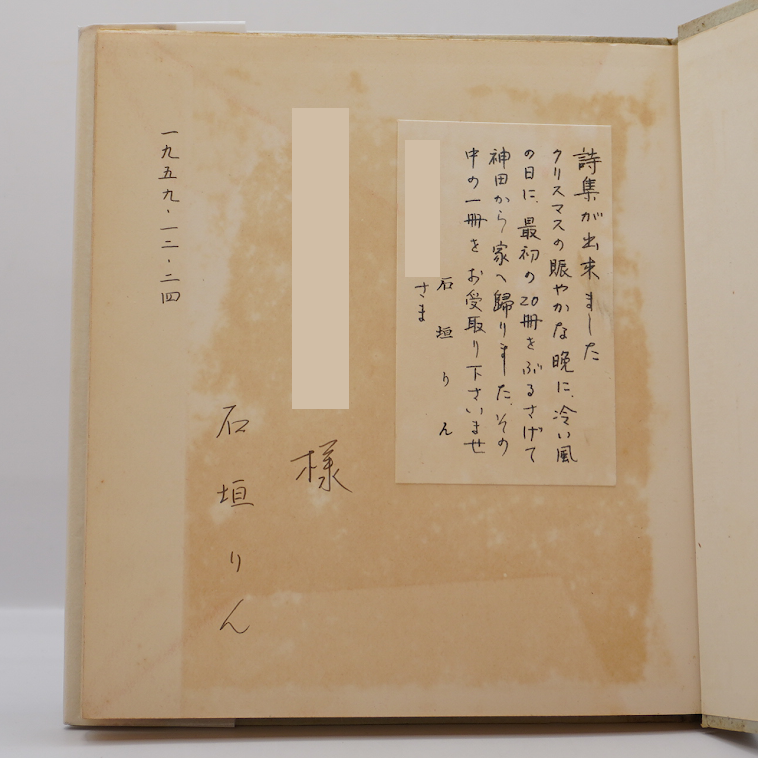 詩集が出来ました
クリスマスの賑やかな晩に、冷い風
の日に、最初の20冊をぶるさげて
神田から家へ歸りました、その
中の一冊をお受取り下さいませ
石垣りん
さま
様
石垣りん
一九五九・一二・二四